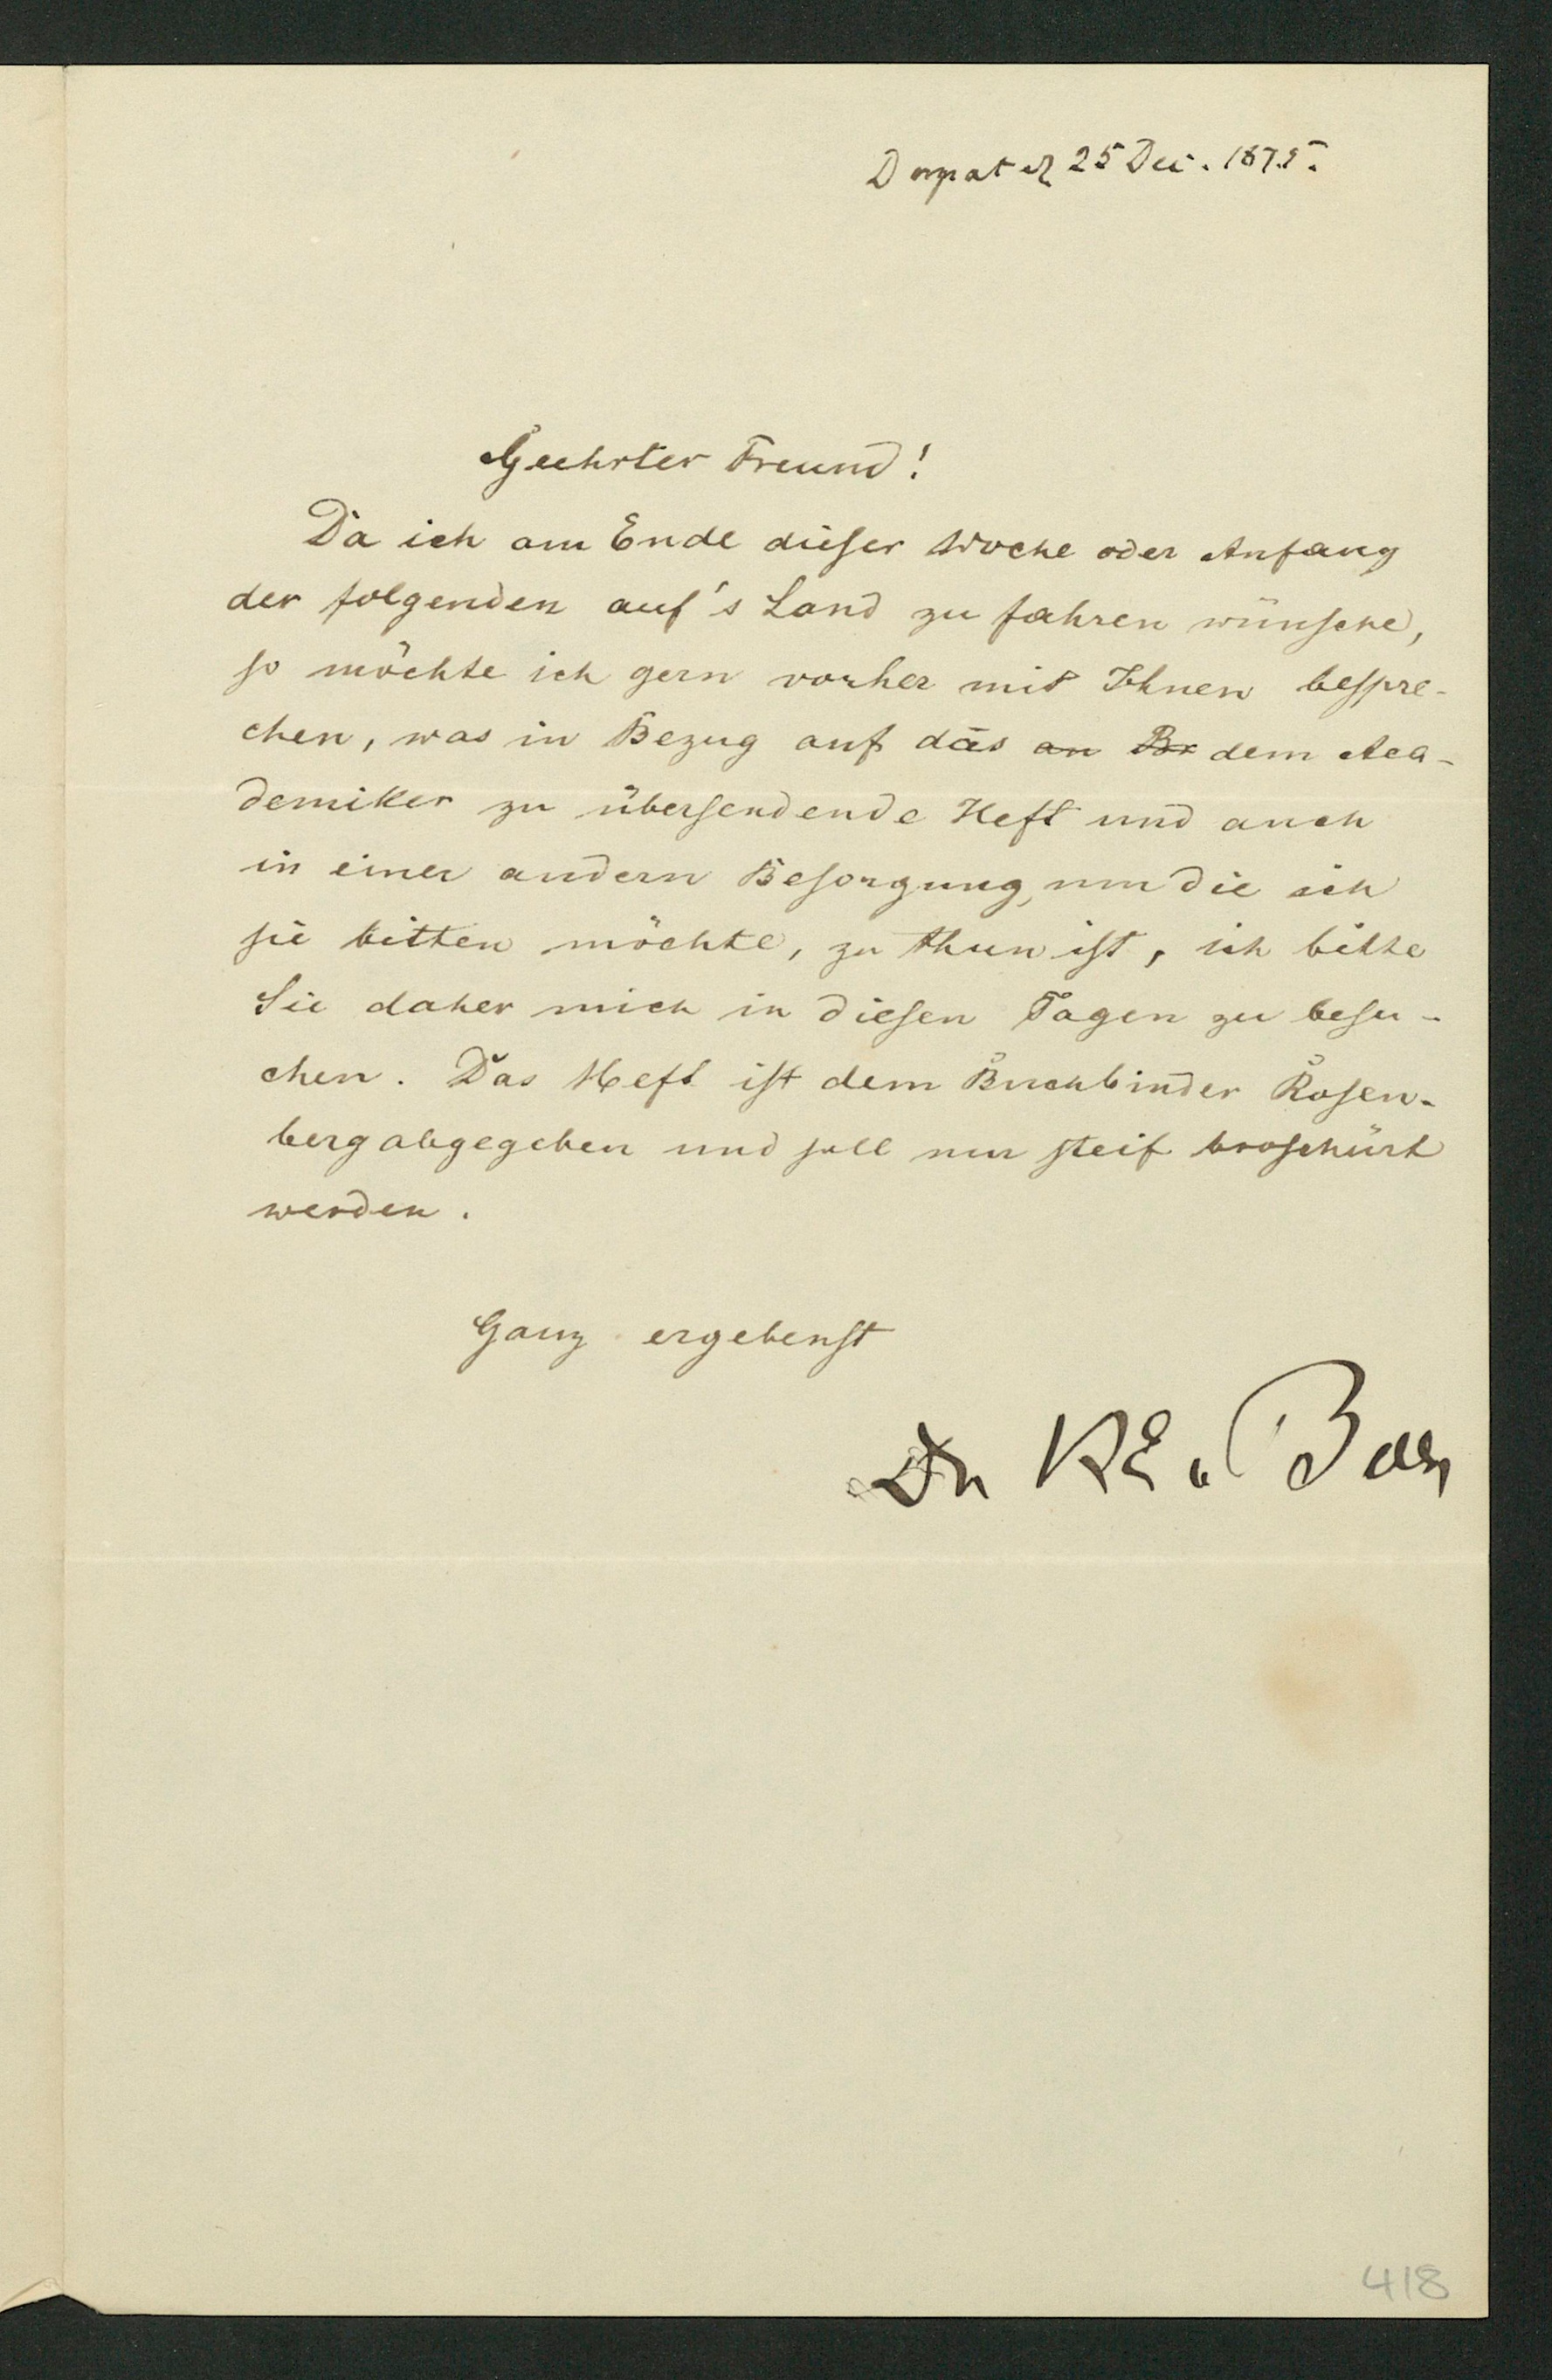 Dorpat d 25 Dec. 1875.
Geehrter Freund!
Da ich am Ende dieser Woche oder Anfang
der folgenden auf's Land zu fahren wünsche,
so möchte ich gern vorher mit Ihnen bespre-
chen, was in Bezug auf das an Br dem Aca-
demiker zu übersendende Heft und auch
in einer andern Besorgung, um die ich
sie bitten möchte, zu thun ist, ich bitte
Sie daher mich in diesen Tagen zu besu-
chen. Das Heft ist dem Buchbinder Rosen-
berg abgegeben und soll nur steif broschürt
werden.
Ganz ergebenst
Dr KE v Baer
418